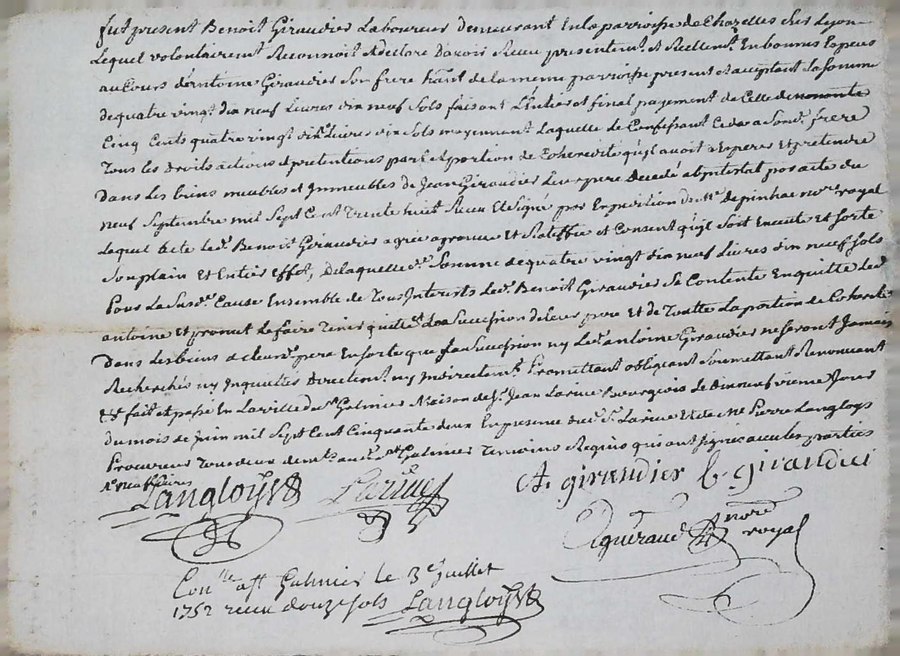 fut present Benoit Giraudier Laboureur demeurant en la parroisse de Chazelles sur Lyon
Lequel volontairemt. Reconnoit et declare D'avoir Receu presentemt. et Reellemt. En bonnes Especes
au Cours d'antoine Giraudier Son frere habt. de la meme parroisse present et acceptant La Somme
de quatre vingt dix neuf Livres dix neuf Sols faisant L'entier et final payement de Celle de nonante
Cinq Cents quatre vingt dix Livres dix Sols moyennant Laquelle Le Confessant Ceda a Sond. frere
Tous les Droits actions et pretentions part et portion de Coheredité qu'il avoit a Esperer Et pretendre
Dans les biens meubles et Immeubles de Jean Giraudier Leur pere Decedé abintestat par acte du
neuf Septembre mil Sept Cent Trente huit Receu Et Signé par Expedition de Me. depinhac nore. royal
Lequel acte led. Benoit Giraudier agrée aprouve Et Ratiffie et Consent qu'il Soit Execute Et sorte
Son plain Et Entier Effet, De laquelle de. Somme de quatre vingt dix neuf Livres dix neuf Sols
Pour La Susd. Cause Ensemble de Tous Interests led. Benoit Giraudier Se Contente En quitte led.
antoine Et promet Le faire Tenir quitte Succession de leur pere Et de Toutte La portion de Coheredité
Dans les biens de leurd. pere En Sorte que Sa Succession ny Led. antoine Giraudier ne Seront Jamais
Recherchés ny Inquietés Directemt. ny Indirectemt. Promettant obligeant Soumettant Renonuant
&& fait et passé En La ville de St. Galmier Maison de Sr. Jean Larive Bourgeois Le Dix neuf vieme Jour
du mois de Juin mil Sept Cent Cinquante deux En presence dud. Sr. Larive Et de Me. Pierre Langloys
Procureur Tous deux demts. aud. St. Galmier Temoins Requis qui ont Signé avec les parties
Langloys Larive A. giraudier b. giraudier
nore royal
Conlle a St. Galmier le 3e Juillet
1752 receu douze sols Langloys